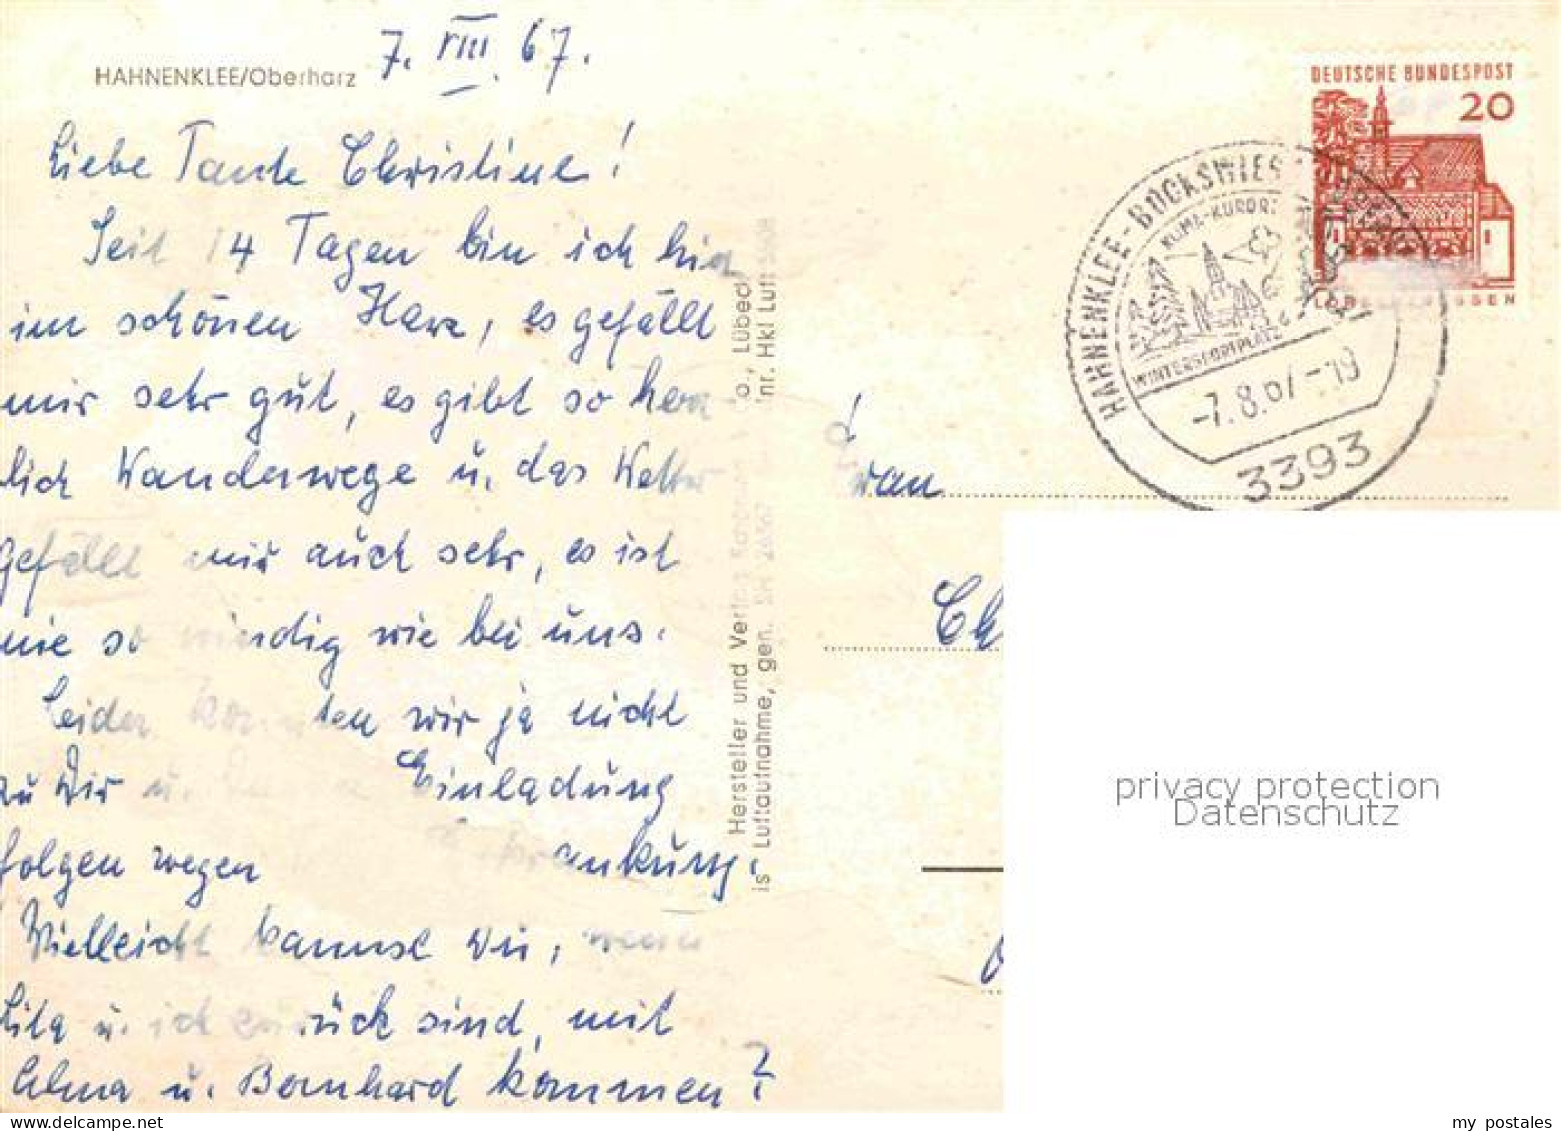 HAHNENKLEE/Oberharz
7. VIII. 67.
Liebe Tante Christine!
Seit 14 Tagen bin ich hier
im schönen Harz, es gefällt
mir sehr gut, es gibt so herr-
lich Wanderwege u. das Wetter
gefällt mir auch sehr, es ist
nie so windig wie bei uns.
Leider konnten wir ja nicht
zu Dir u. Einladung
folgen wegen
Vielleicht kannst Du, wenn
Lita u. ich zurück sind, mit
Alma u. Bernhard kommen?
Hersteller und Verlag
Lübeck
Luftaufnahme, gen. SH
DEUTSCHE BUNDESPOST
20
HAHNENKLEE-BOCKSWIES
KLIMA-KURORT
WINTERSPORTPLATZ
-7.8.67-19
3393
Frau
Ch
privacy protection
Datenschutz
my postales